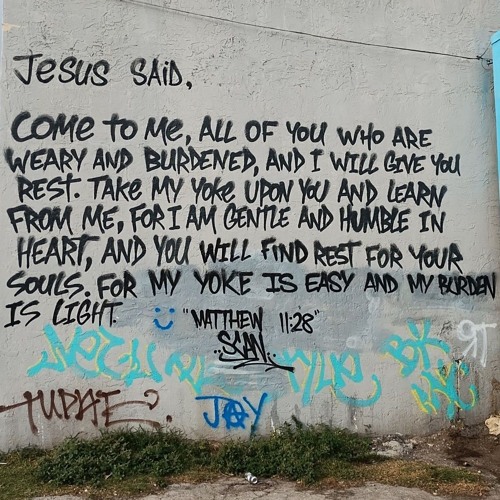 JESUS SAID,
COME to Me, ALL OF YOU WHO ARE
WEARY AND BURDENED, AND I WILL GIVE YOU
REST. TAKE MY YOKE UPON YOU AND LEARN
FROM ME, FOR I AM GENTLE AND HUMBLE IN
HEART, AND YOU WILL FIND REST FOR YOUR
SOULS. FOR MY YOKE IS EASY AND MY BURDEN
IS LIGHT. "MATTHEW 11:28"
JAY